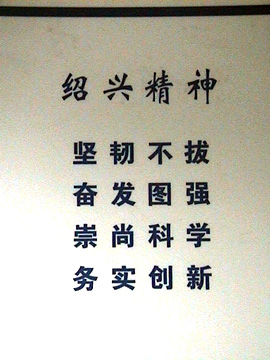 绍兴精神
坚韧不拔
奋发图强
崇尚科学
务实创新